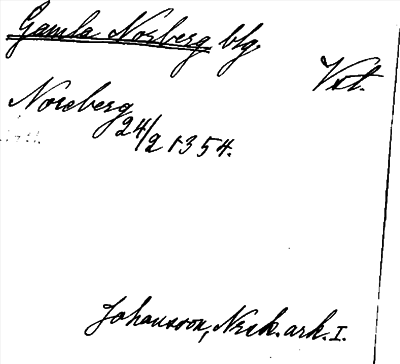 Gamla Norberg blg.
Vstm.
Noreberg
24/2 1354.
Johansson, Nork. ark. I.